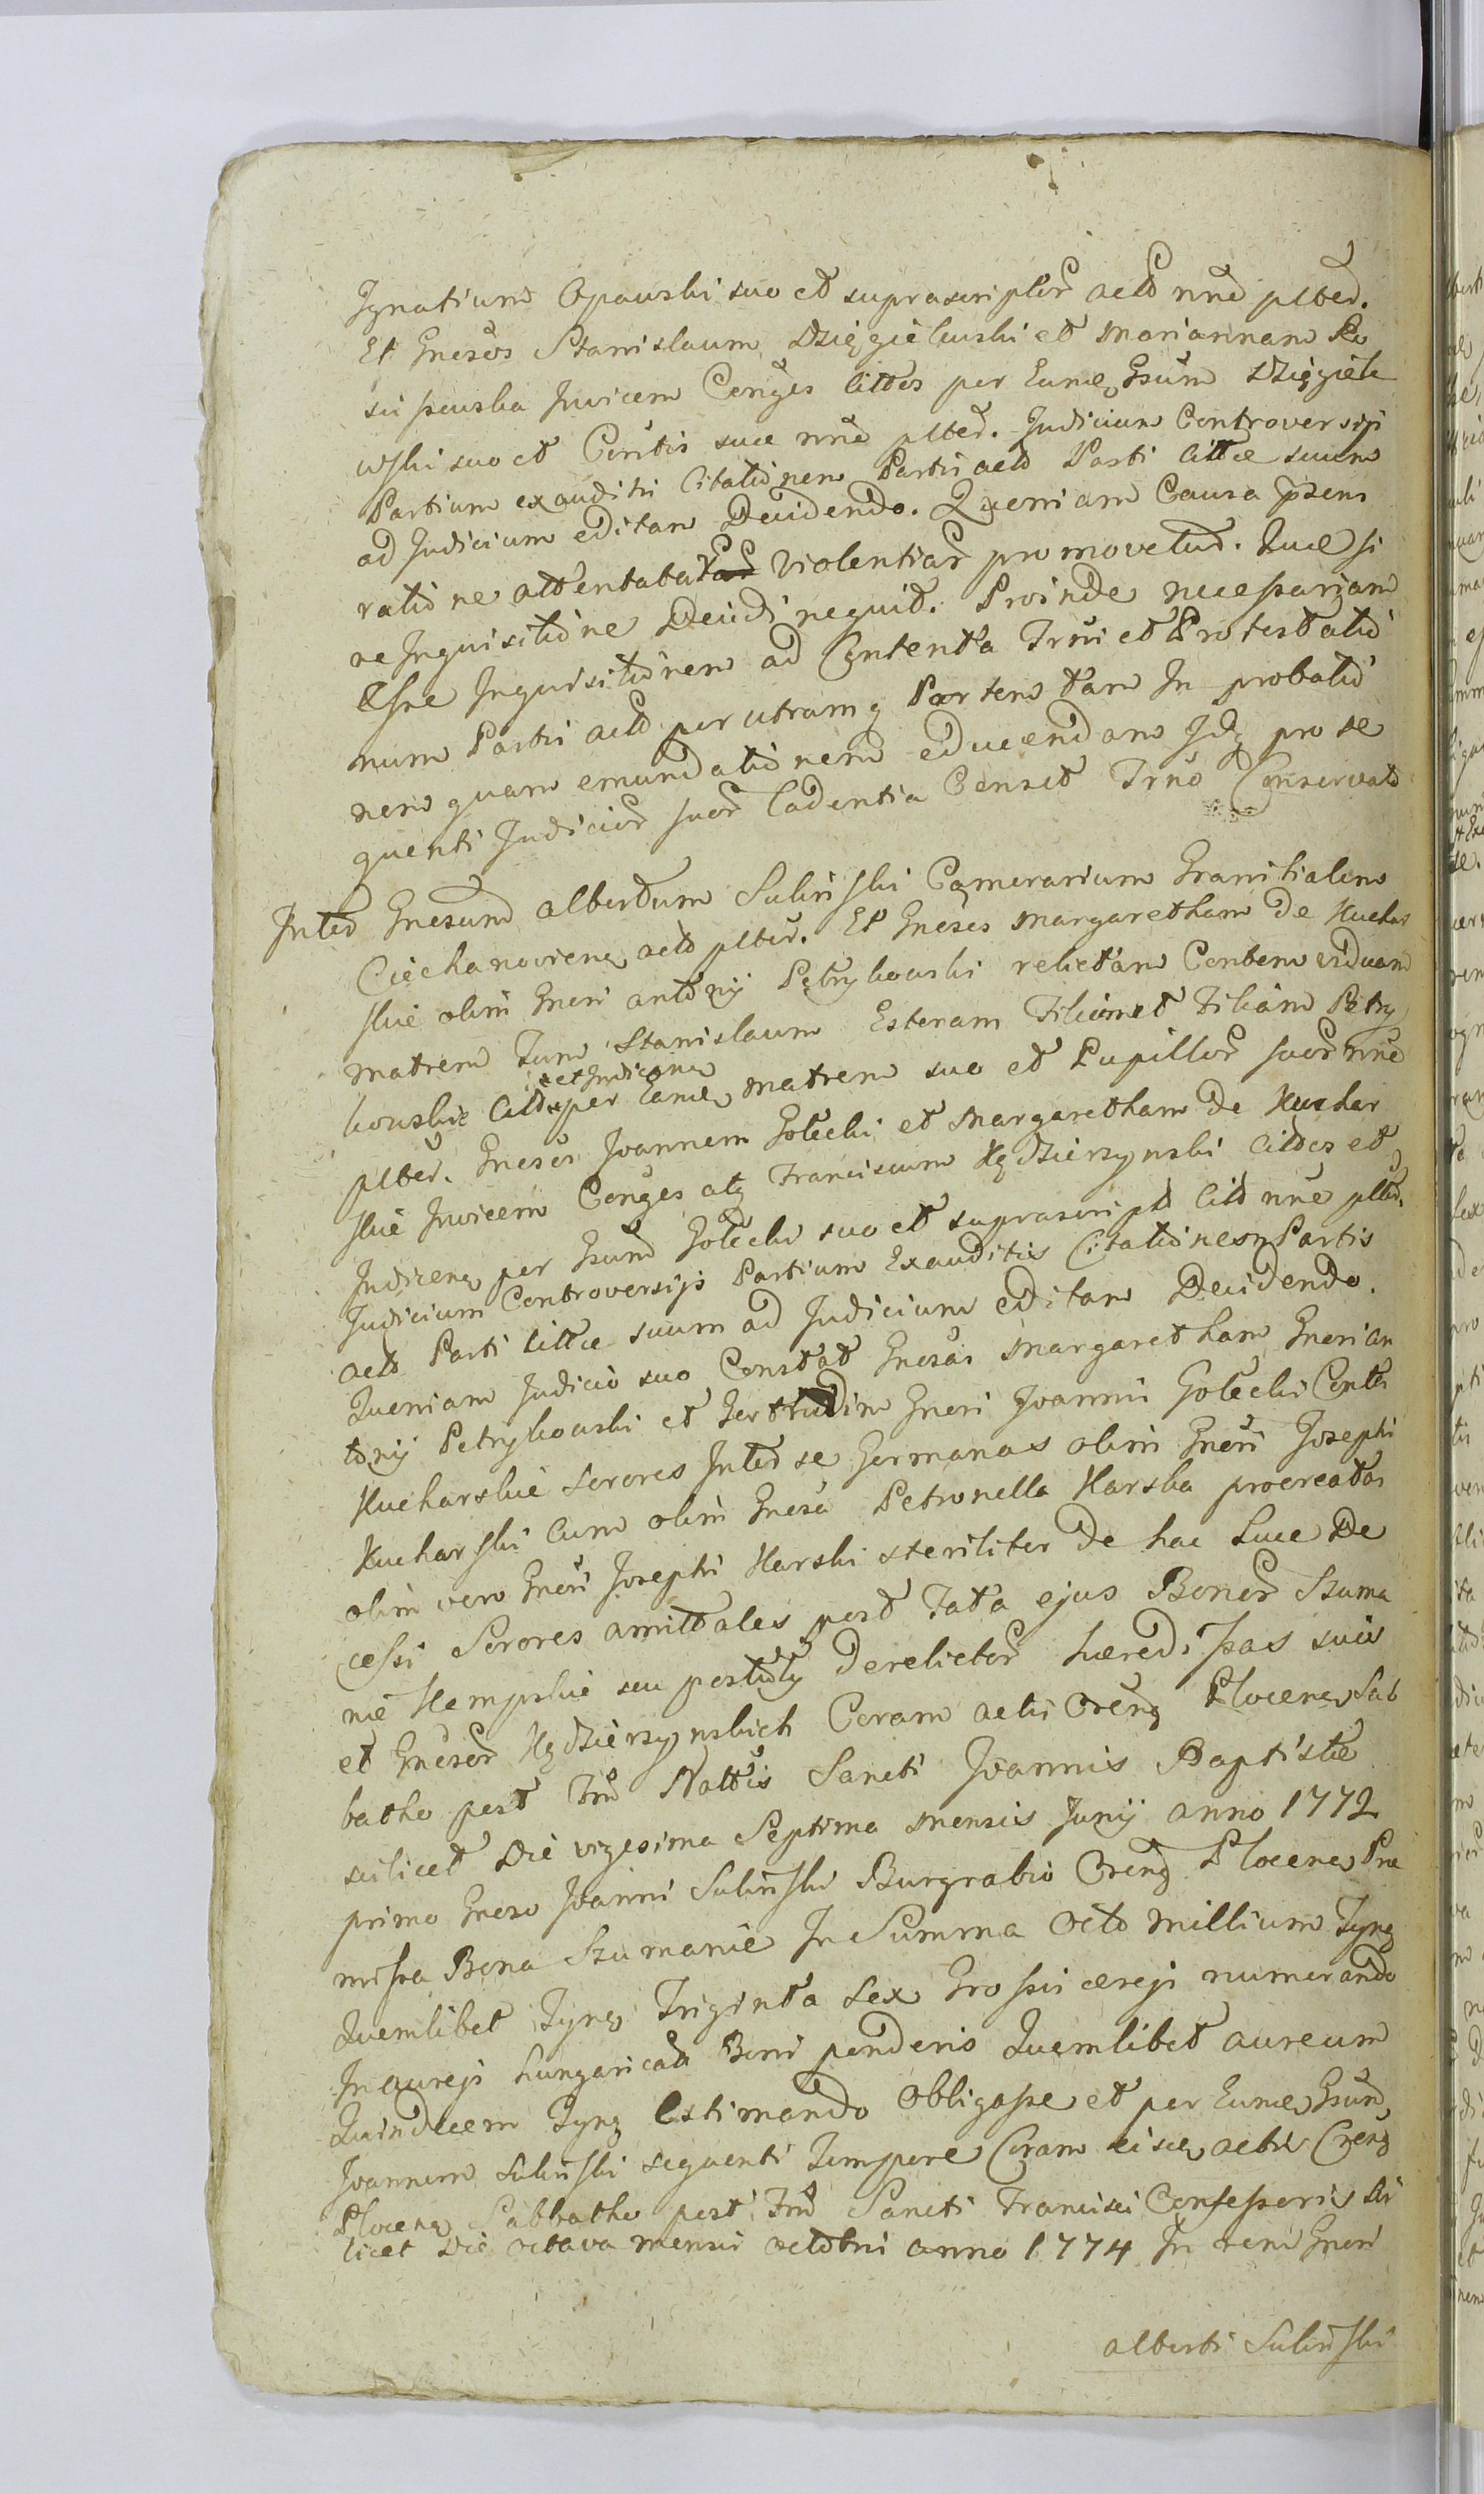 Ignatium Opauski suo et suprascriptor actor nne pltber.
Et Gnesos Stanislaum Dzięgielewski et Mariannam Ro
sciszewska Invicem Conges cittos per Eume Gsum Dzięgiele
wski suo et Contis suae nne pltber. Judicium Controversijs
Partium exauditis Citationem Partis acto Parti cittae suum
ad Judicium editam Decidendo. Quoniam Causa psens
ratione attentatar violentiar promovetur. Quae si
ne Inquisitione Decidi nequit. Proinde necessariam
Esse Inquisitionem ad Contenta Trni et Protestatio
num Partis acto per utramq Partem tam In probatio
nem quam emundationem educendam Idq pro se
quenti Judicior suor Cadentia Censet Trno Conservato
Inter Gnesum Albertum Sulinski Camerarium Granitialem
Ciechanoviens acto pltber. Et Gnesos Margaretham de Kuchar
skie olim Gnesi Antonij Petrykowski relictam Contem viduam
matrem Tum Stanislaum Esteram Filium et Filiam Petry
et Indicane
kowskie Citto per Eame matrem suo et Pupillor suor nne
pltber. Gnesos Joannem Gotecki et Margaretham de Kuchar
skie Invicem Conges atq Franciscum Kędzierzynski Cittos et
Indicene per Gsum Gotecki suo et suprascript Citto nne pltber.
Judicium Controversijs Partium Exauditis Citationem Partis
acto Parti cittae suum ad Judicium editam Decidendo.
Quoniam Judicio suo Constat Gnesas Margaretham Gnesi An
tonij Petrykowski et Gertrudim Gnesi Joannis Gotecki Contes
Kucharskie Sorores Inter se Germanas olim Gnesi Josephi
Kucharski cum olim Gnesa Petronella Karska procreatas
olim vero Gnesi Josephi Karski steriliter de hac Luce De
cessi Sorores amittales post Fata ejus Bonor Szuma
nie Kempskie seu Derelictor haeredissas suis
et Gnesor Kędzierzynskich Coram actis Creng Plocens Sab
batho post Fm Nattis Sancti Joannis Baptistae
scilicet Die vigesima Septima mensis Junij anno 1772
primo Gneso Joanni Sulinski Burgrabio Creng Plocens Prae
missa Bona Szumanie In Summa Octo millium Tyng
Quemlibet Tyng Triginta Sex Grossis aerejs numerando
In aurejs hungaricali Boni ponderis Quemlibet aureum
Quindecem Tyng Estimando Obligasse et per Eume Gsum
Joannem Sulinski sequenti Tempore Coram eisce actis Creng
Plocens Sabbatho post Fm Sancti Francisci Confessoris Sci
licet Die octava mensis octobris anno 1774 In rem Gnesi
Alberti Sulinski